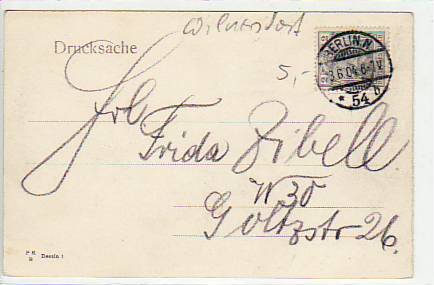 Wilmersdorf
Drucksache
5,-
BERLIN.N.
3.6.04.6-7V.
* 54 b
Frl.
Frida Zibell
W 30
Goltzstr 26.
Dessin 1